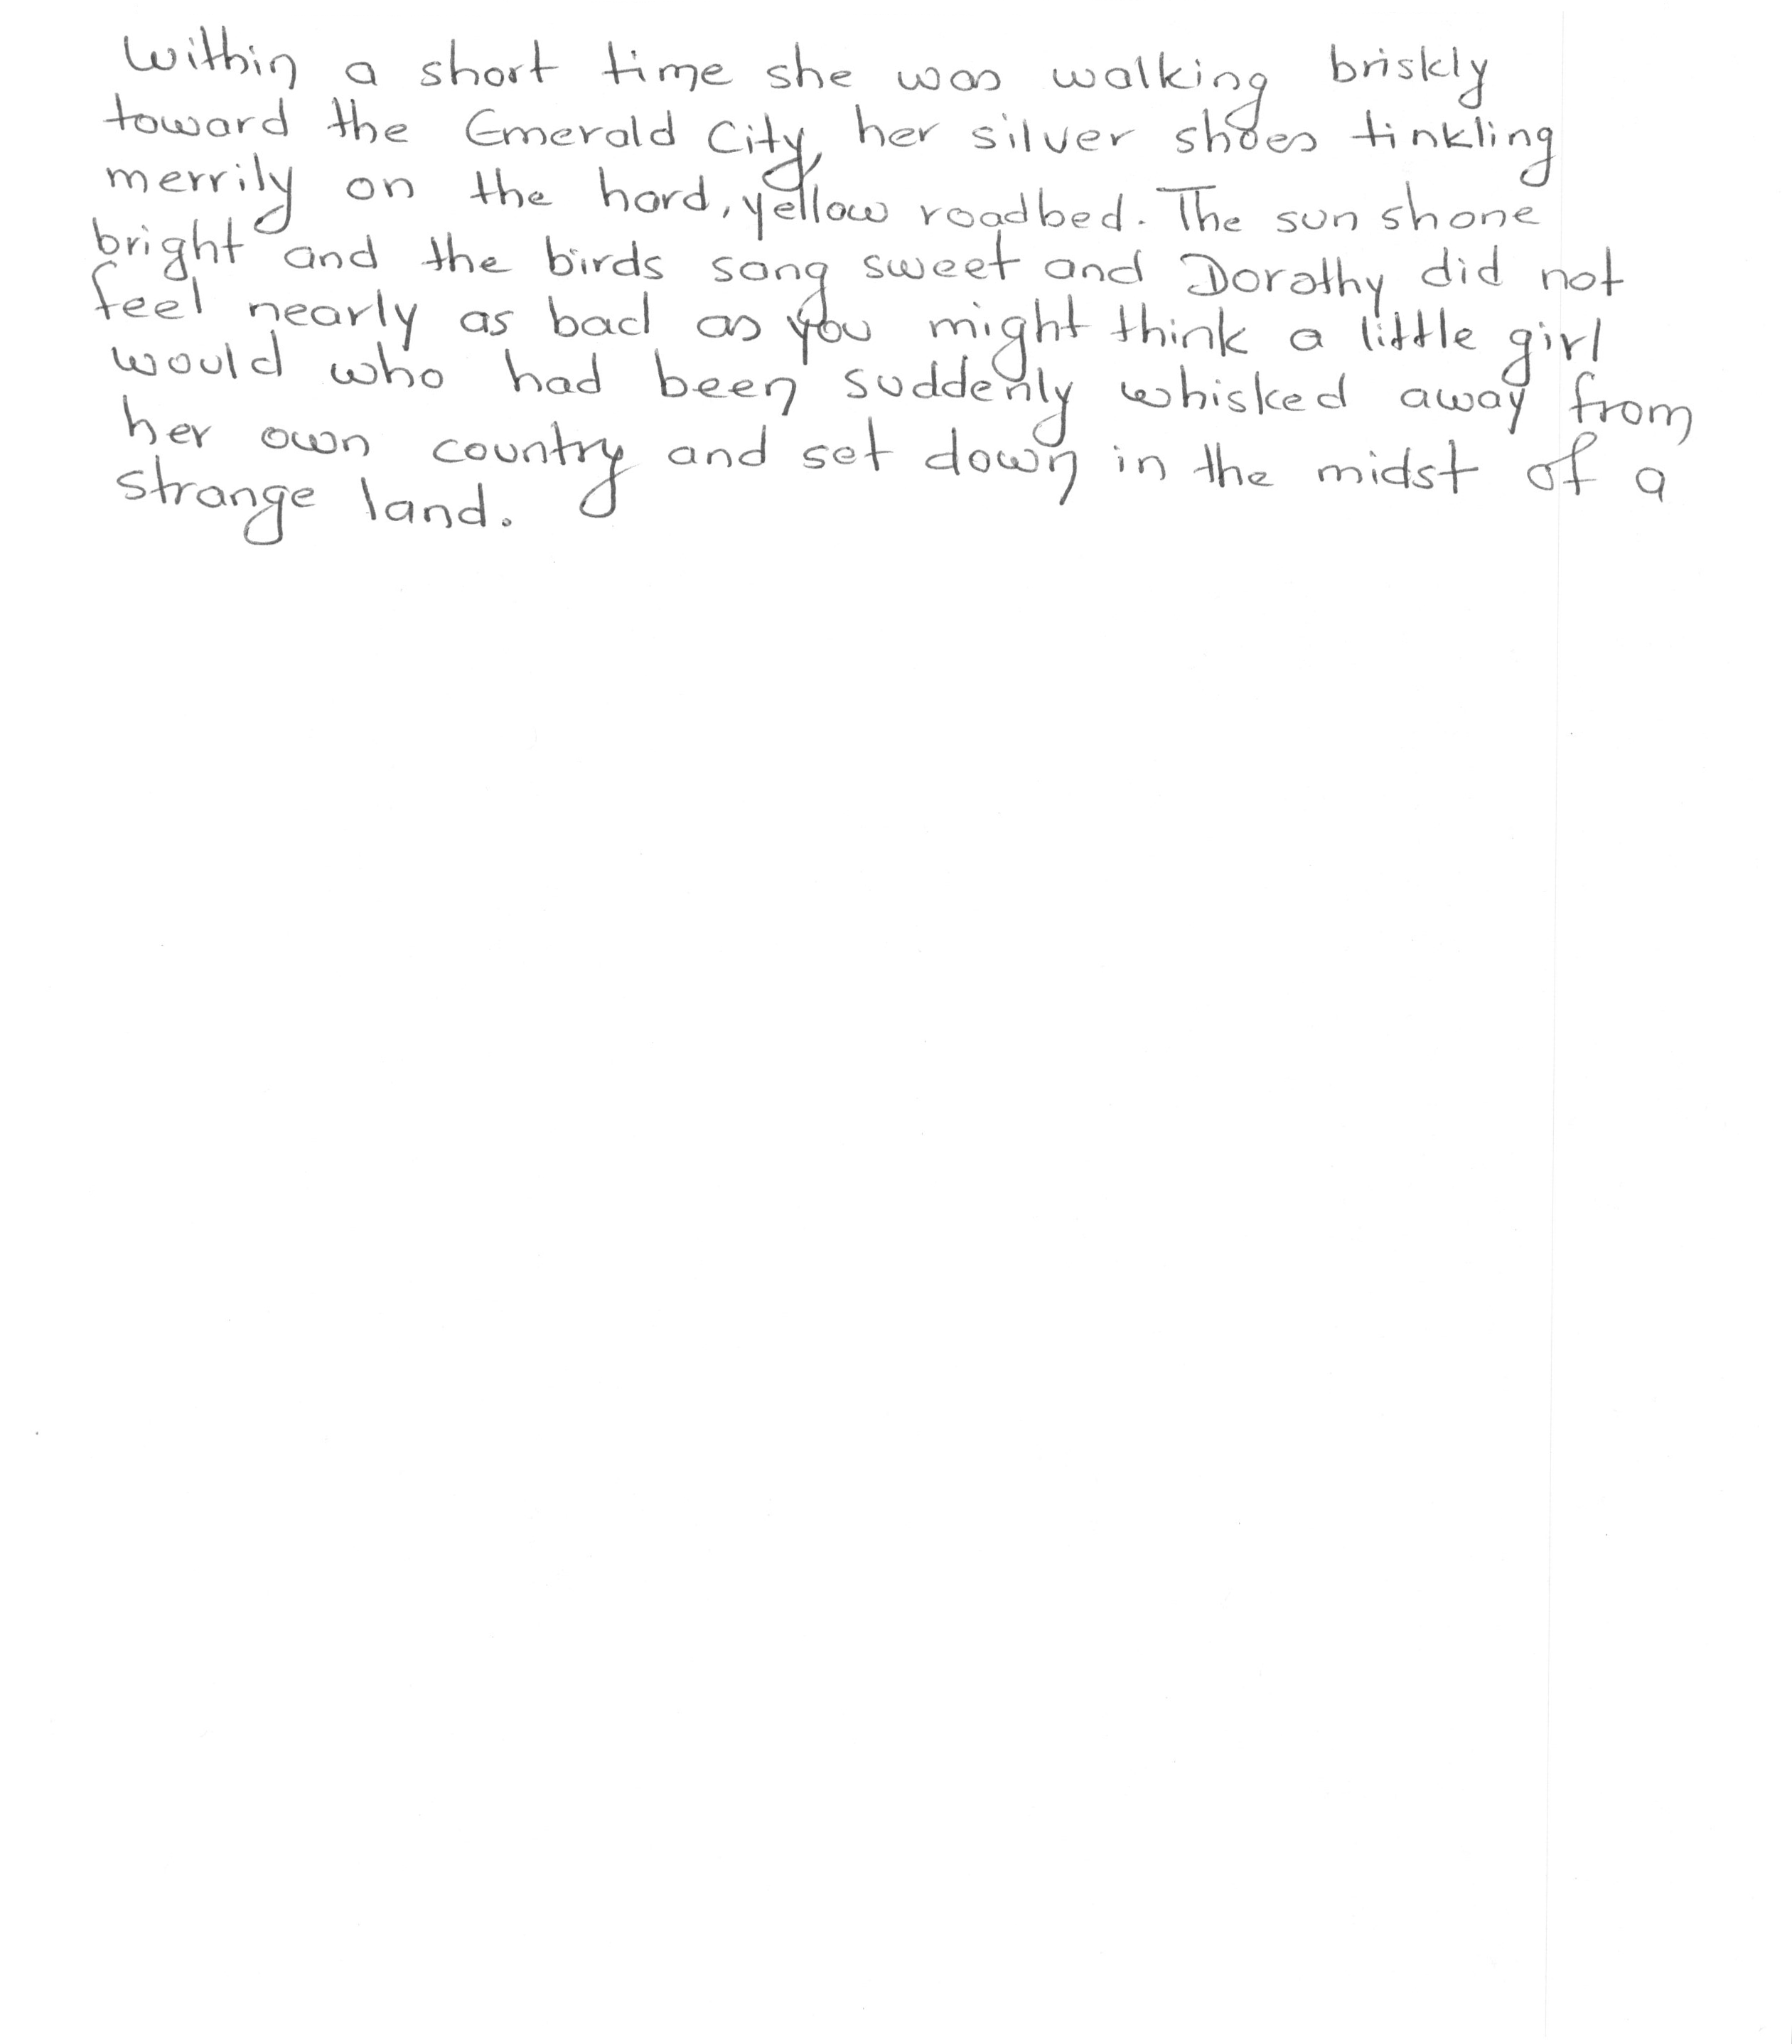 Within a short time she was walking briskly
toward the Emerald City, her silver shoes tinkling
merrily on the hard, yellow roadbed. The sun shone
bright and the birds sang sweet and Dorothy did not
feel nearly as bad as you might think a little girl
would who had been suddenly whisked away from
her own country and set down in the midst of a
strange land.